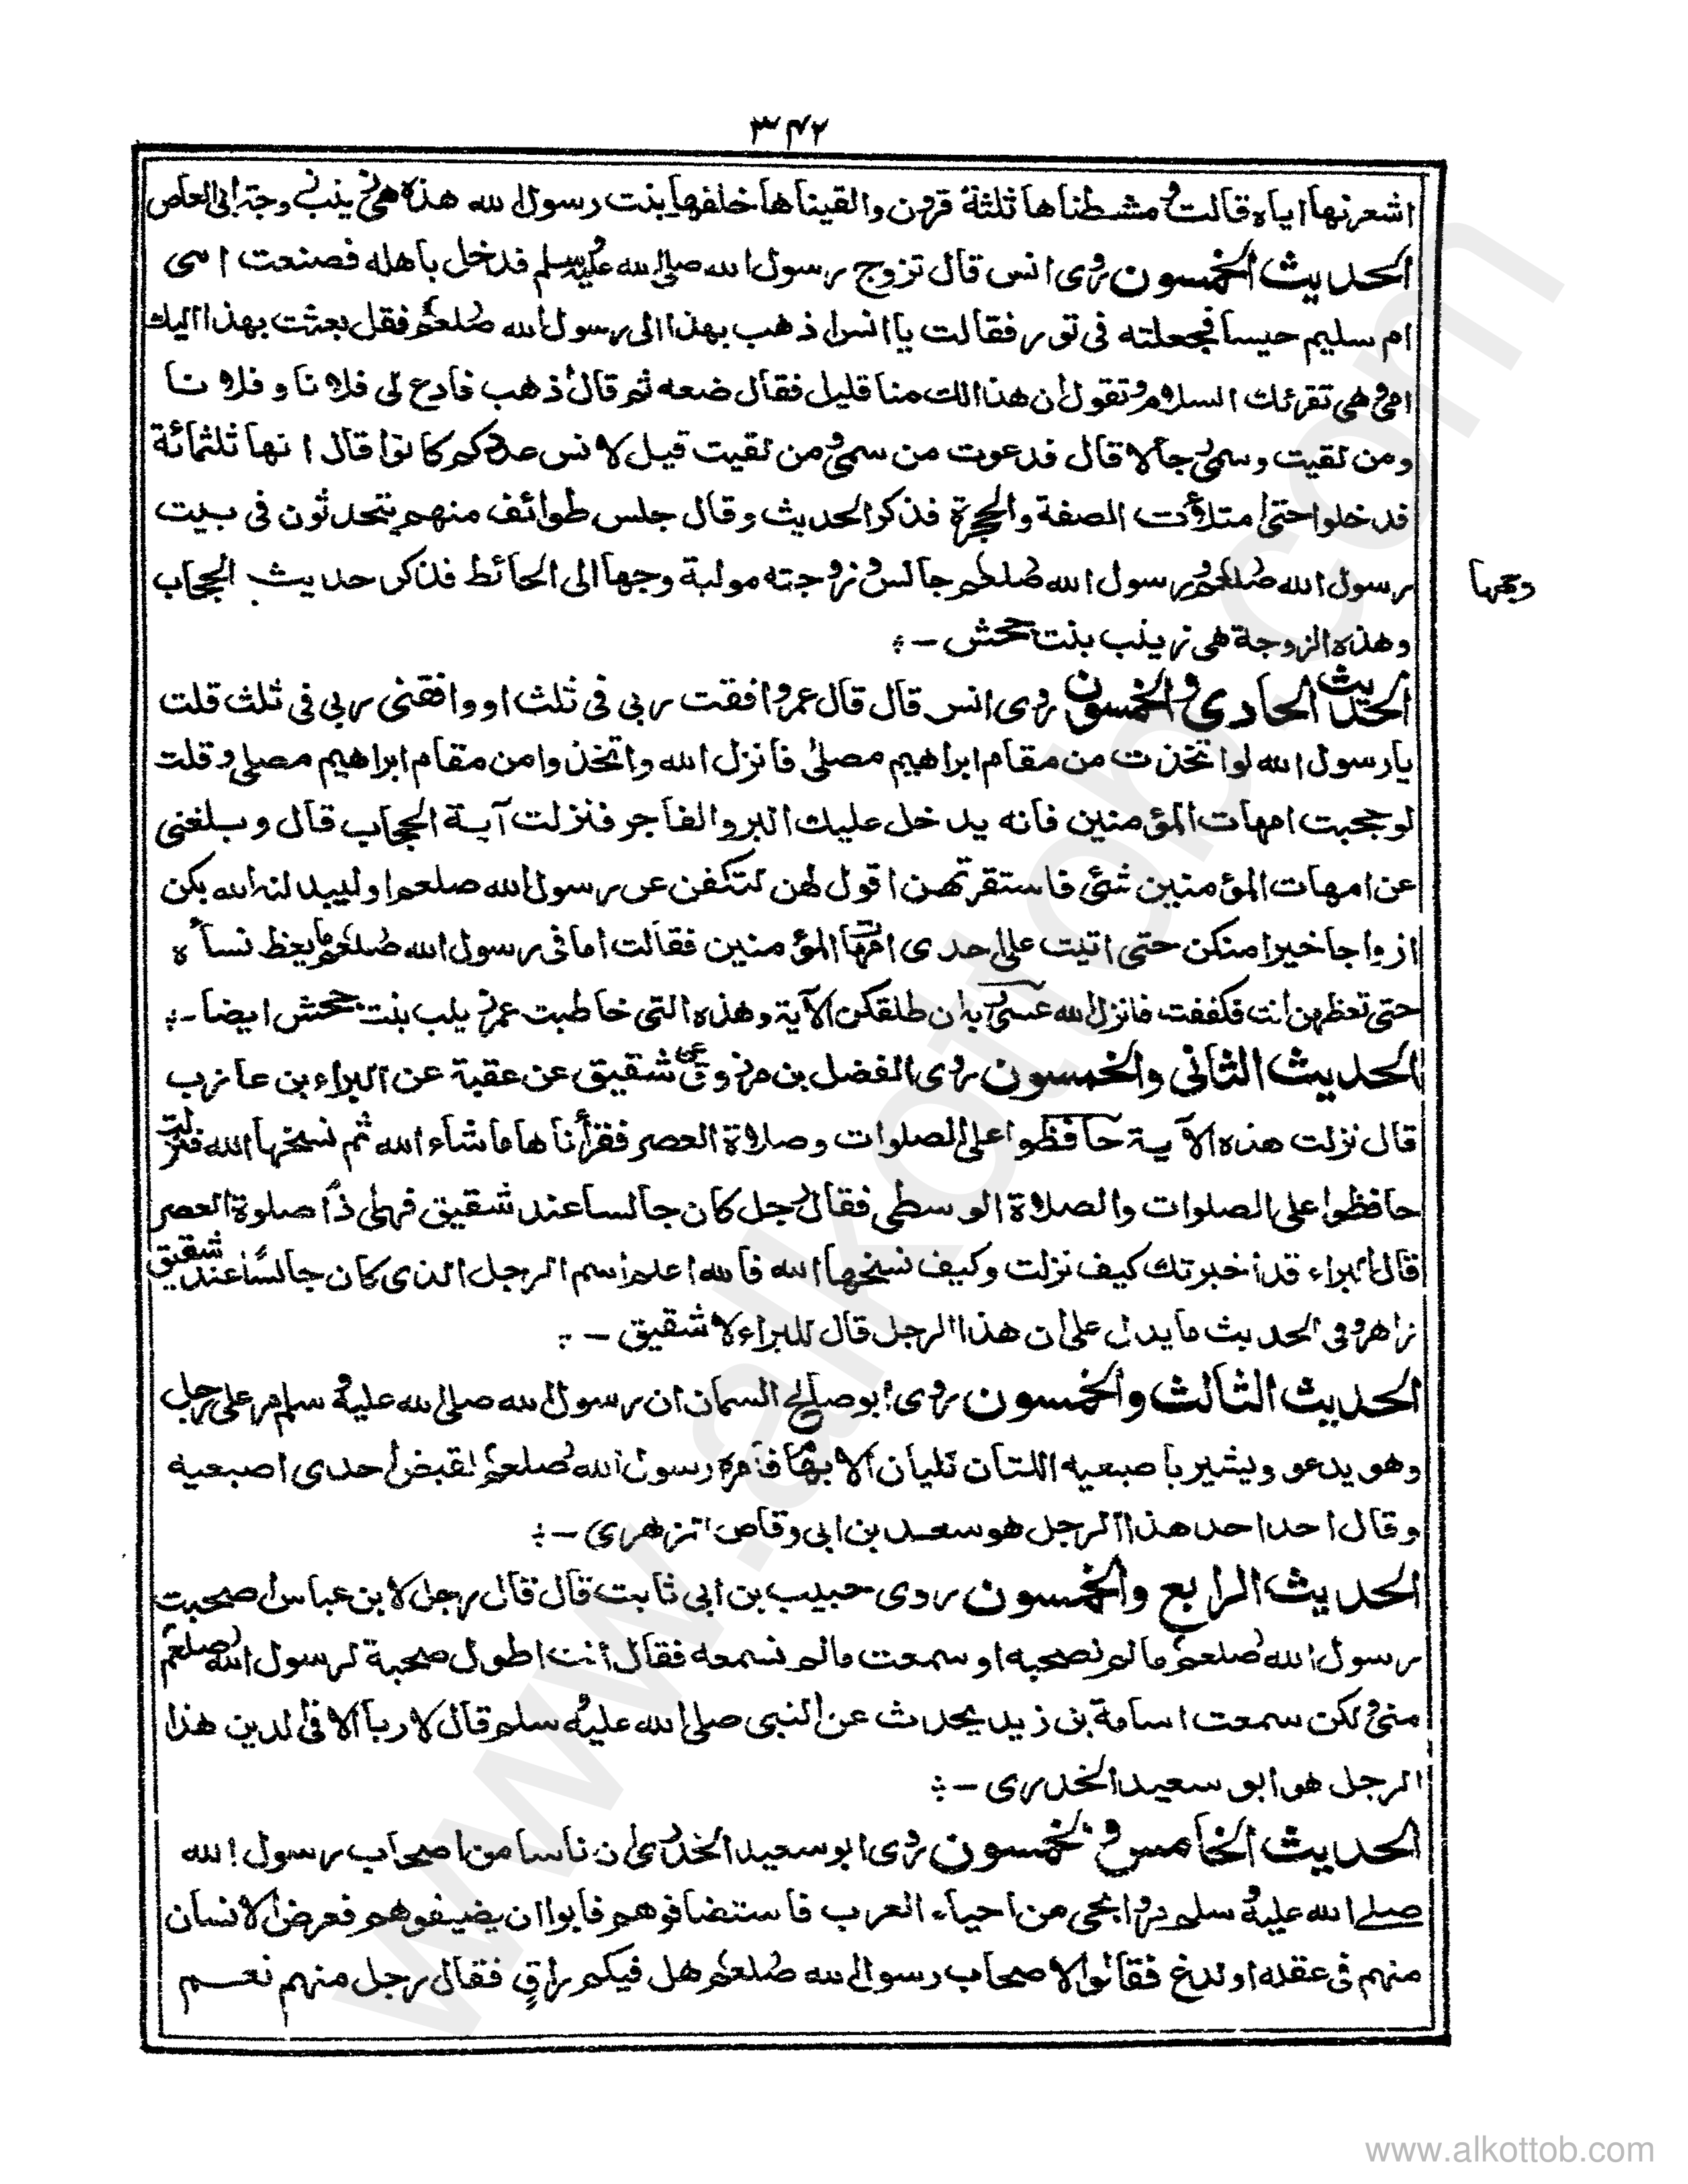 ٣٤٢
اشعرنها اياه قالت ومشطناها ثلثة قرون والقيناها خلفها بنت رسول الله هذه هى زينب زوجة ابى العاص
الحديث الخمسون روى انس قال تزوج رسول الله صلى الله عليه وسلم فدخل باهله فصنعت امى
ام سليم حيسا فجعلته فى تور فقالت يا انس اذهب بهذا الى رسول الله صلعم فقل بعثت بهذا اليك
امى وهى تقرئك السلام وتقول ان هذا لك منا قليل فقال ضعه ثم قال اذهب فادع لى فلانا وفلانا
ومن لقيت وسمى رجالا قال فدعوت من سمى ومن لقيت قيل لانس عددكم كانوا قال انها ثلثمائة
فدخلوا حتى امتلأت الصفة والحجرة فذكر الحديث وقال جلس طوائف منهم يتحدثون فى بيت
رسول الله صلعم ورسول الله صلعم جالس وزوجته مولية وجها الى الحائط فذكر حديث الحجاب
وجهها
وهذه الزوجة هى زينب بنت جحش -
الحديث الحادى والخمسون روى انس قال قال عمر وافقت ربى فى ثلث او وافقنى ربى فى ثلث قلت
يا رسول الله لو اتخذت من مقام ابراهيم مصلى فانزل الله واتخذوا من مقام ابراهيم مصلى وقلت
لو حجبت امهات المؤمنين فانه يدخل عليك البر والفاجر فنزلت آية الحجاب قال وبلغنى
عن امهات المؤمنين شئ فاستقرتهن اقول لهن لتكفن عن رسول الله صلعم او ليبدلنه الله بكن
ازواجا خيرا منكن حتى اتيت على احدى امهات المؤمنين فقالت اما فى رسول الله صلعم ما يعظ نساءه
حتى تعظهن انت فكففت فانزل الله عسى ربه ان طلقكن الآية وهذه التى خاطبت عمر زينب بنت جحش ايضا -
الحديث الثانى والخمسون روى الفضل بن مرزوق عن شقيق عن عقبة عن البراء بن عازب
قال نزلت هذه الآية حافظوا على الصلوات وصلاة العصر فقرأناها ما شاء الله ثم نسخها الله فنزلت
حافظوا على الصلوات والصلاة الوسطى فقال رجل كان جالسا عند شقيق فهى اذا صلوة العصر
قال البراء قد أخبرتك كيف نزلت وكيف نسخها الله فالله اعلم اسم الرجل الذى كان جالسا عند شقيق
زاهر وفى الحديث ما يدل على ان هذا الرجل قال للبراء لا شقيق -
الحديث الثالث والخمسون روى ابو صالح السمان ان رسول الله صلى الله عليه وسلم مر على رجل
وهو يدعو ويشير باصبعيه اللتان تليان الابهام فامره رسول الله صلعم فقبض احدى اصبعيه
وقال احد احد هذا الرجل هو سعد بن ابى وقاص الزهرى -
الحديث الرابع والخمسون روى حبيب بن ابى ثابت قال قال رجل لابن عباس اصحبت
رسول الله صلعم ما لم نصحبه او سمعت ما لم نسمعه فقال أنت اطول صحبة لرسول الله صلعم
منى ولكن سمعت اسامة بن زيد يحدث عن النبى صلى الله عليه وسلم قال لا ربا الا فى الدين هذا
الرجل هو ابو سعيد الخدرى -
الحديث الخامس والخمسون روى ابو سعيد الخدرى ان ناسا من اصحاب رسول الله
صلى الله عليه وسلم مروا بحى من احياء العرب فاستضافوهم فابوا ان يضيفوهم فعرض لانسان
منهم فى عقله او لدغ فقالوا لاصحاب رسول الله صلعم هل فيكم راق فقال رجل منهم نعم
www.alkottob.com
www.alkottob.com